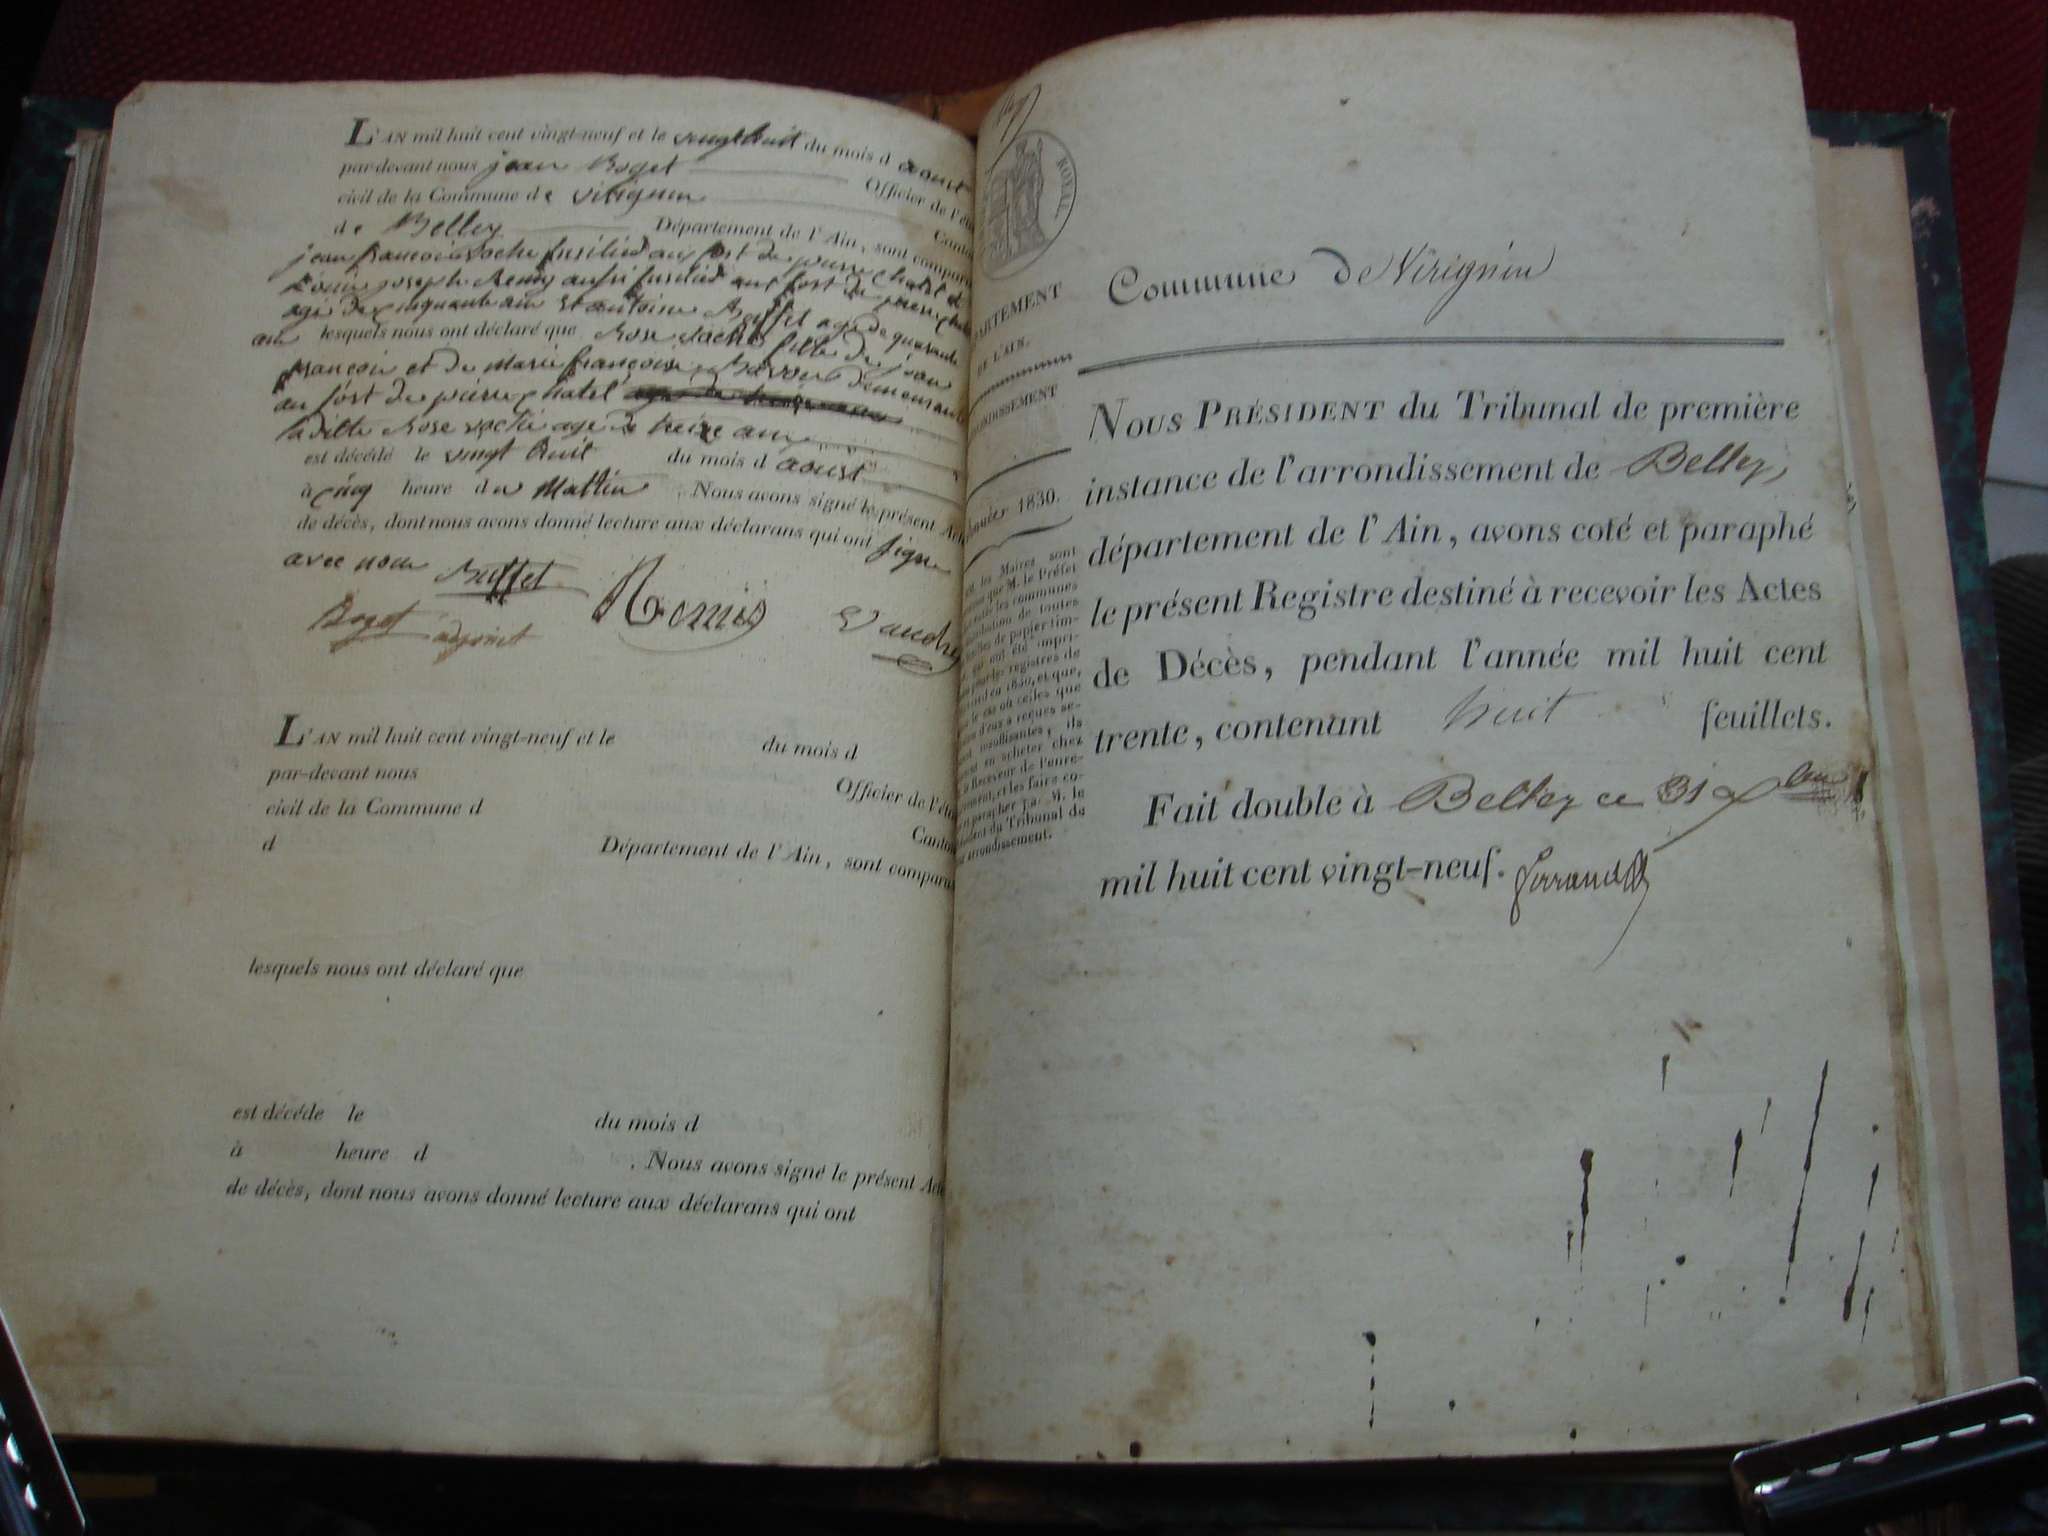 L'AN mil huit cent vingt-neuf et le vingt huit du mois d aoust
par-devant nous jean Boget Officier de l'éta
civil de la Commune de virignin Canto
de Belley Département de l'Ain, sont compar
jean francois fusilied au fort de pierre chatel et
Louis joseph Remy aussi fusilied aux fort de pierre chatel
agé de cinquante ans et antoine Buffet agé de quarante
ans lesquels nous ont déclaré que Rose vache fille de jean
francois et de Marie francoise demeurante
au fort de pierre chatel
la ditte Rose vache age de treize ans
est décédé le vingt huit du mois d aoust
à cinq heure du Mattin. Nous avons signé le présent Acte
de décès, dont nous avons donné lecture aux déclarans qui ont signe
avec nous Buffet Remis
Boget adjoint
L'AN mil huit cent vingt-neuf et le du mois d
par-devant nous Officier de l'éta
civil de la Commune d Canto
d Département de l'Ain, sont comparus
lesquels nous ont déclaré que
est décéde le du mois d
à heure d . Nous avons signé le présent Acte
de décès, dont nous avons donné lecture aux déclarans qui ont
ROYAL
ARTEMENT
DE L'AIN.
ONDISSEMENT
1830.
les Maires sont
que M. le Préfet
les communes
de toutes
de papier tim-
ont été impri-
registres de
en 1830, et que,
le cas où celles que
reçues se-
insuffisantes, ils
en acheter chez
Receveur de l'enre-
et les faire co-
parapher par M. le
du Tribunal de
arrondissement.
Commune de Virignin
NOUS PRÉSIDENT du Tribunal de première
instance de l'arrondissement de Belley,
département de l'Ain, avons coté et paraphé
le présent Registre destiné à recevoir les Actes
de Décès, pendant l'année mil huit cent
trente, contenant huit feuillets.
Fait double à Belley ce 31 xbre
mil huit cent vingt-neuf.